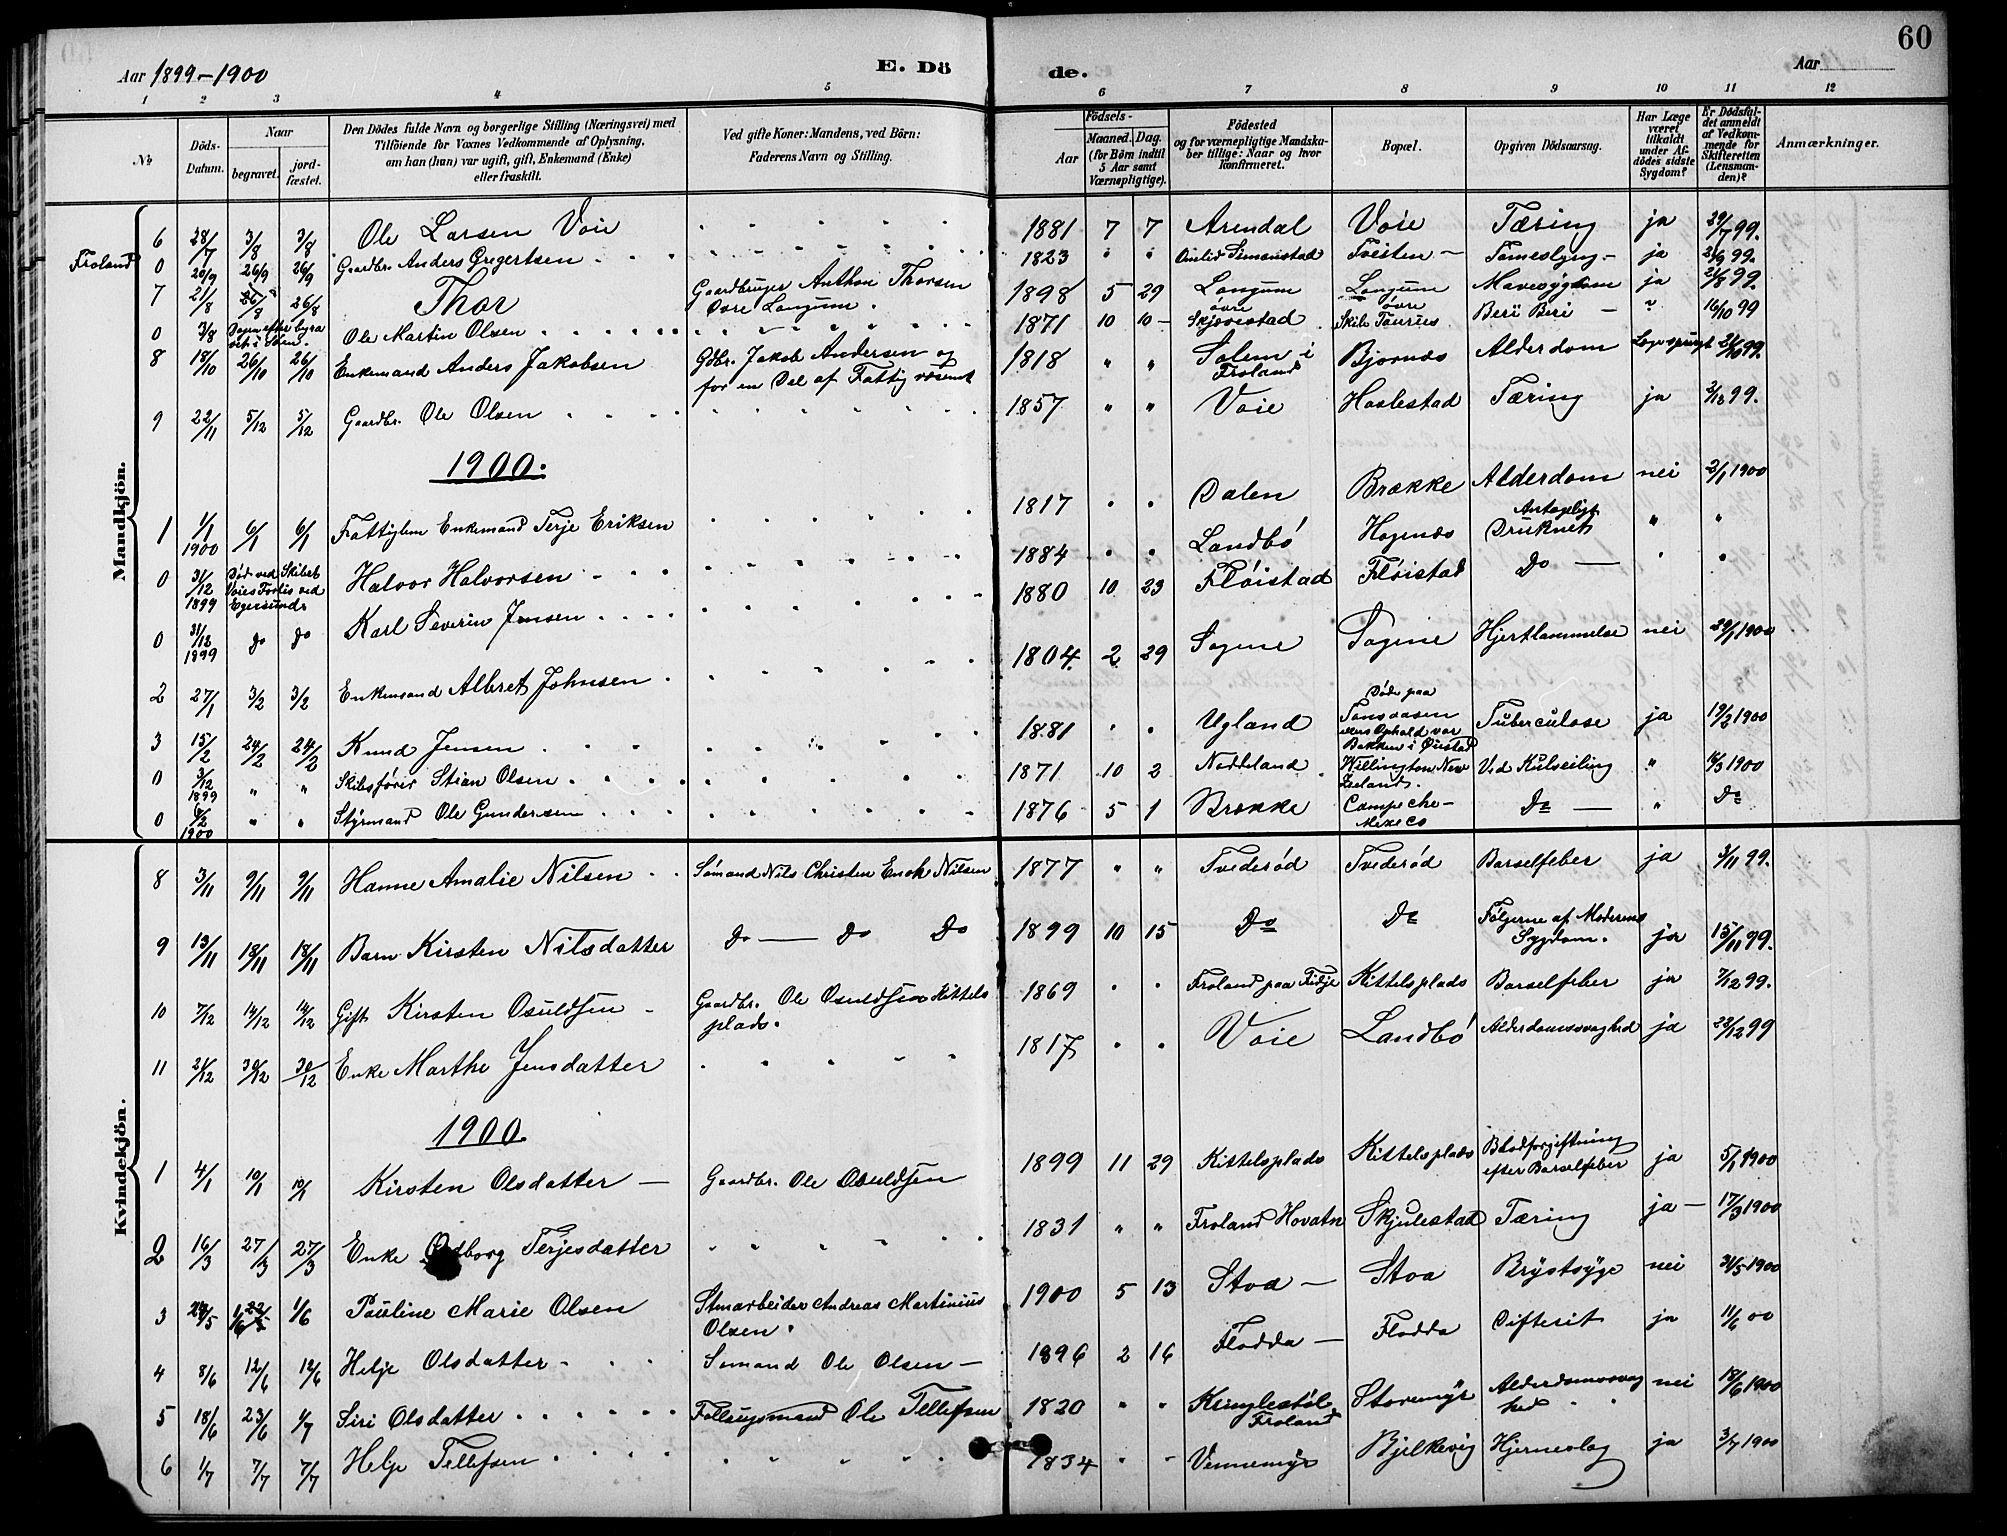 60
Aar 1899-1900 E. Döde. Aar
1 2 3 4 5 6 7 8 9 10 11 12
No
Döds-Datum.
Naar
begravet.
jordfæstet.
Den Dödes fulde Navn og borgerlige Stilling (Næringsvei) med
Tilföiende for Voxnes Vedkommende af Oplysning,
om han (hun) var ugift, gift, Enkemand (Enke)
eller fraskilt.
Ved gifte Koner: Mandens, ved Börn:
Faderens Navn og Stilling.
Födsels-
Aar
Maaned. Dag.
(for Börn indtil
5 Aar samt
Værnepligtige).
Födested
og for værnepligtige Mandskaber tillige: Naar og hvor
konfirmeret.
Bopæl.
Opgiven Dödsaarsag.
Har Læge
været
tilkaldt
under Afdödes sidste
Sygdom?
Er Dödsfaldet anmeldt
af Vedkommende for
Skifteretten
(Lensmanden)?
Anmærkninger.
Mandkjön.
6 28/7 3/8 3/8 Ole Larsen Voie 1881 7 7 Arendal Voie Tæring ja 29/7 99.
Froland 0 20/9 26/9 26/9 Gaardbr. Anders Gregertsen 1823 Omlid Simonstad Tveiten - ja 99.
7 21/8 26/8 26/8 Thor Gaardbruger Anthon Thorsen 1898 5 29 Longum Longum Mavesygdom ja 99.
Øvre Longum.
0 3/8 Dagen efter begravet i Søen. Ole Martin Olsen 1871 10 10 - Skjævestad Skib Beri Beri - 16/10 99
8 18/10 26/10 26/10 Enkemand Anders Jakobsen Gdbr. Jakob Andersen og 1818 Solem i Froland Bjornes Alderdom 99.
for en Del af Fattigvæsenet
9 22/11 5/12 5/12 Gaardbr. Ole Olsen 1857 Voie Haslestad Tæring ja 99.
1900.
1 1/1 1900 6/1 6/1 Fattiglem Enkemand Terje Eriksen 1817 Dalen Brække Alderdom nei 2/1 1900
0 31/12 1899 Død ved Skibet Voies Forlis ved Egersund. Halvor Halvorsen 1884 Landbö Hagenes Antageligt Druknet "
0 31/12 1899 do do Karl Severin Jensen 1880 10 23 Flöistad Flöistad Do - "
2 27/1 3/2 3/2 Enkemand Albret Johnsen 1804. 2 29 Sagene Sagene Hjertlammelse nei 29/1 1900
3 15/2 24/2 24/2 Knud Jensen 1881 Ugland Døde paa Tonsaasen Tuberculose ja 19/2 1900
Bakken i Øiestad
0 3/12 1899 " " Skibsförer Stian Olsen 1871 10 2 Nedteland Willington New Zeeland. Ved Kulseiling " 1900
0 1900 " " Styrmand Ole Gundersen 1876 5 1 Brekke Campeche - Mexeco Do - " Do
Kvindekjön.
8 3/11 9/11 9/11 Hanne Amalie Nilsen Sømand Nils Christen Enok Nilsen 1877 " " Tvederöd Tvederöd Barselfeber ja 3/11 99.
9 13/11 18/11 18/11 Barn Kirsten Nilsdatter Do - Do Do 1899 10 15 Do Do Følgerne af Moderens Sygdom. ja 15/11 99.
10 7/12 14/12 14/12 Gift Kirsten Osuldsen Gaardbr. Ole Osuldsen Kittelsplads. 1869 Froland paa Fidje Kittelsplads Barselfeber ja 7/12 99.
11 21/12 30/12 30/12 Enke Marthe Jensdatter 1817 Voie Landbö Alderdomssvaghed ja 22/12 99
1900.
1 4/1 10/1 10/1 Kirsten Olsdatter - Gaardbr. Ole Osuldsen 1899 11 29 Kittelsplads Kittelsplads Blodforgiftning efter Barselfeber ja 5/1 1900
2 16/3 27/3 27/3 Enke Terjesdatter 1831 " " Froland Hovatn Skjulestad Tæring ja - 17/3 1900
3 29/5 1/6 1/6 Pauline Marie Olsen Stenarbeider Andreas Martinius Olsen. 1900 5 13 Stoa - Stoa Brystsyge nei 31/5 1900
4 8/6 12/6 12/6 Helje Olsdatter - Sømand Ole Olsen - 1896 2 16 Flodda - Flodda Difterit ja 11/6 00
5 18/6 23/6 1/7 Siri Olsdatter Ole Tellefsen 1820 Kringlestöl Froland Storemyr Alderdomssvaghed nei 18/6 1900
6 1/7 7/7 7/7 Helje Tellefsen 1834 Vennemyr Bjelkevig Hjerneslag ja 3/7 1900